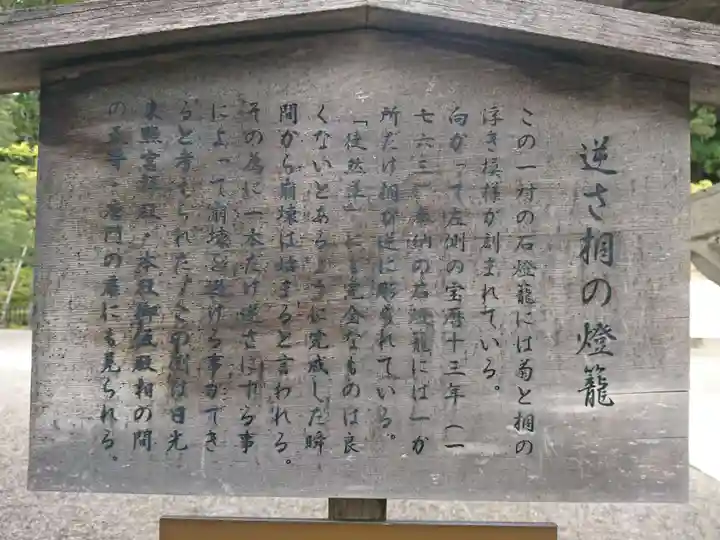 逆さ桐の燈籠
この一対の石燈籠には菊と桐の
浮き模様が刻まれている。
向かって左側の宝暦十三年（一
七六三）奉納の石燈籠には一か
所だけ桐が逆に彫られている。
「徒然草」にも完全なものは良
くないとあるように完成した瞬
間から崩壊は始まると言われる。
その為に一本だけ逆さにする事
によって崩壊を避ける事ができ
ると考えられた。この例は日光
東照宮拝殿・本殿御仮殿相の間
の　　・唐門の扉にも見られる。